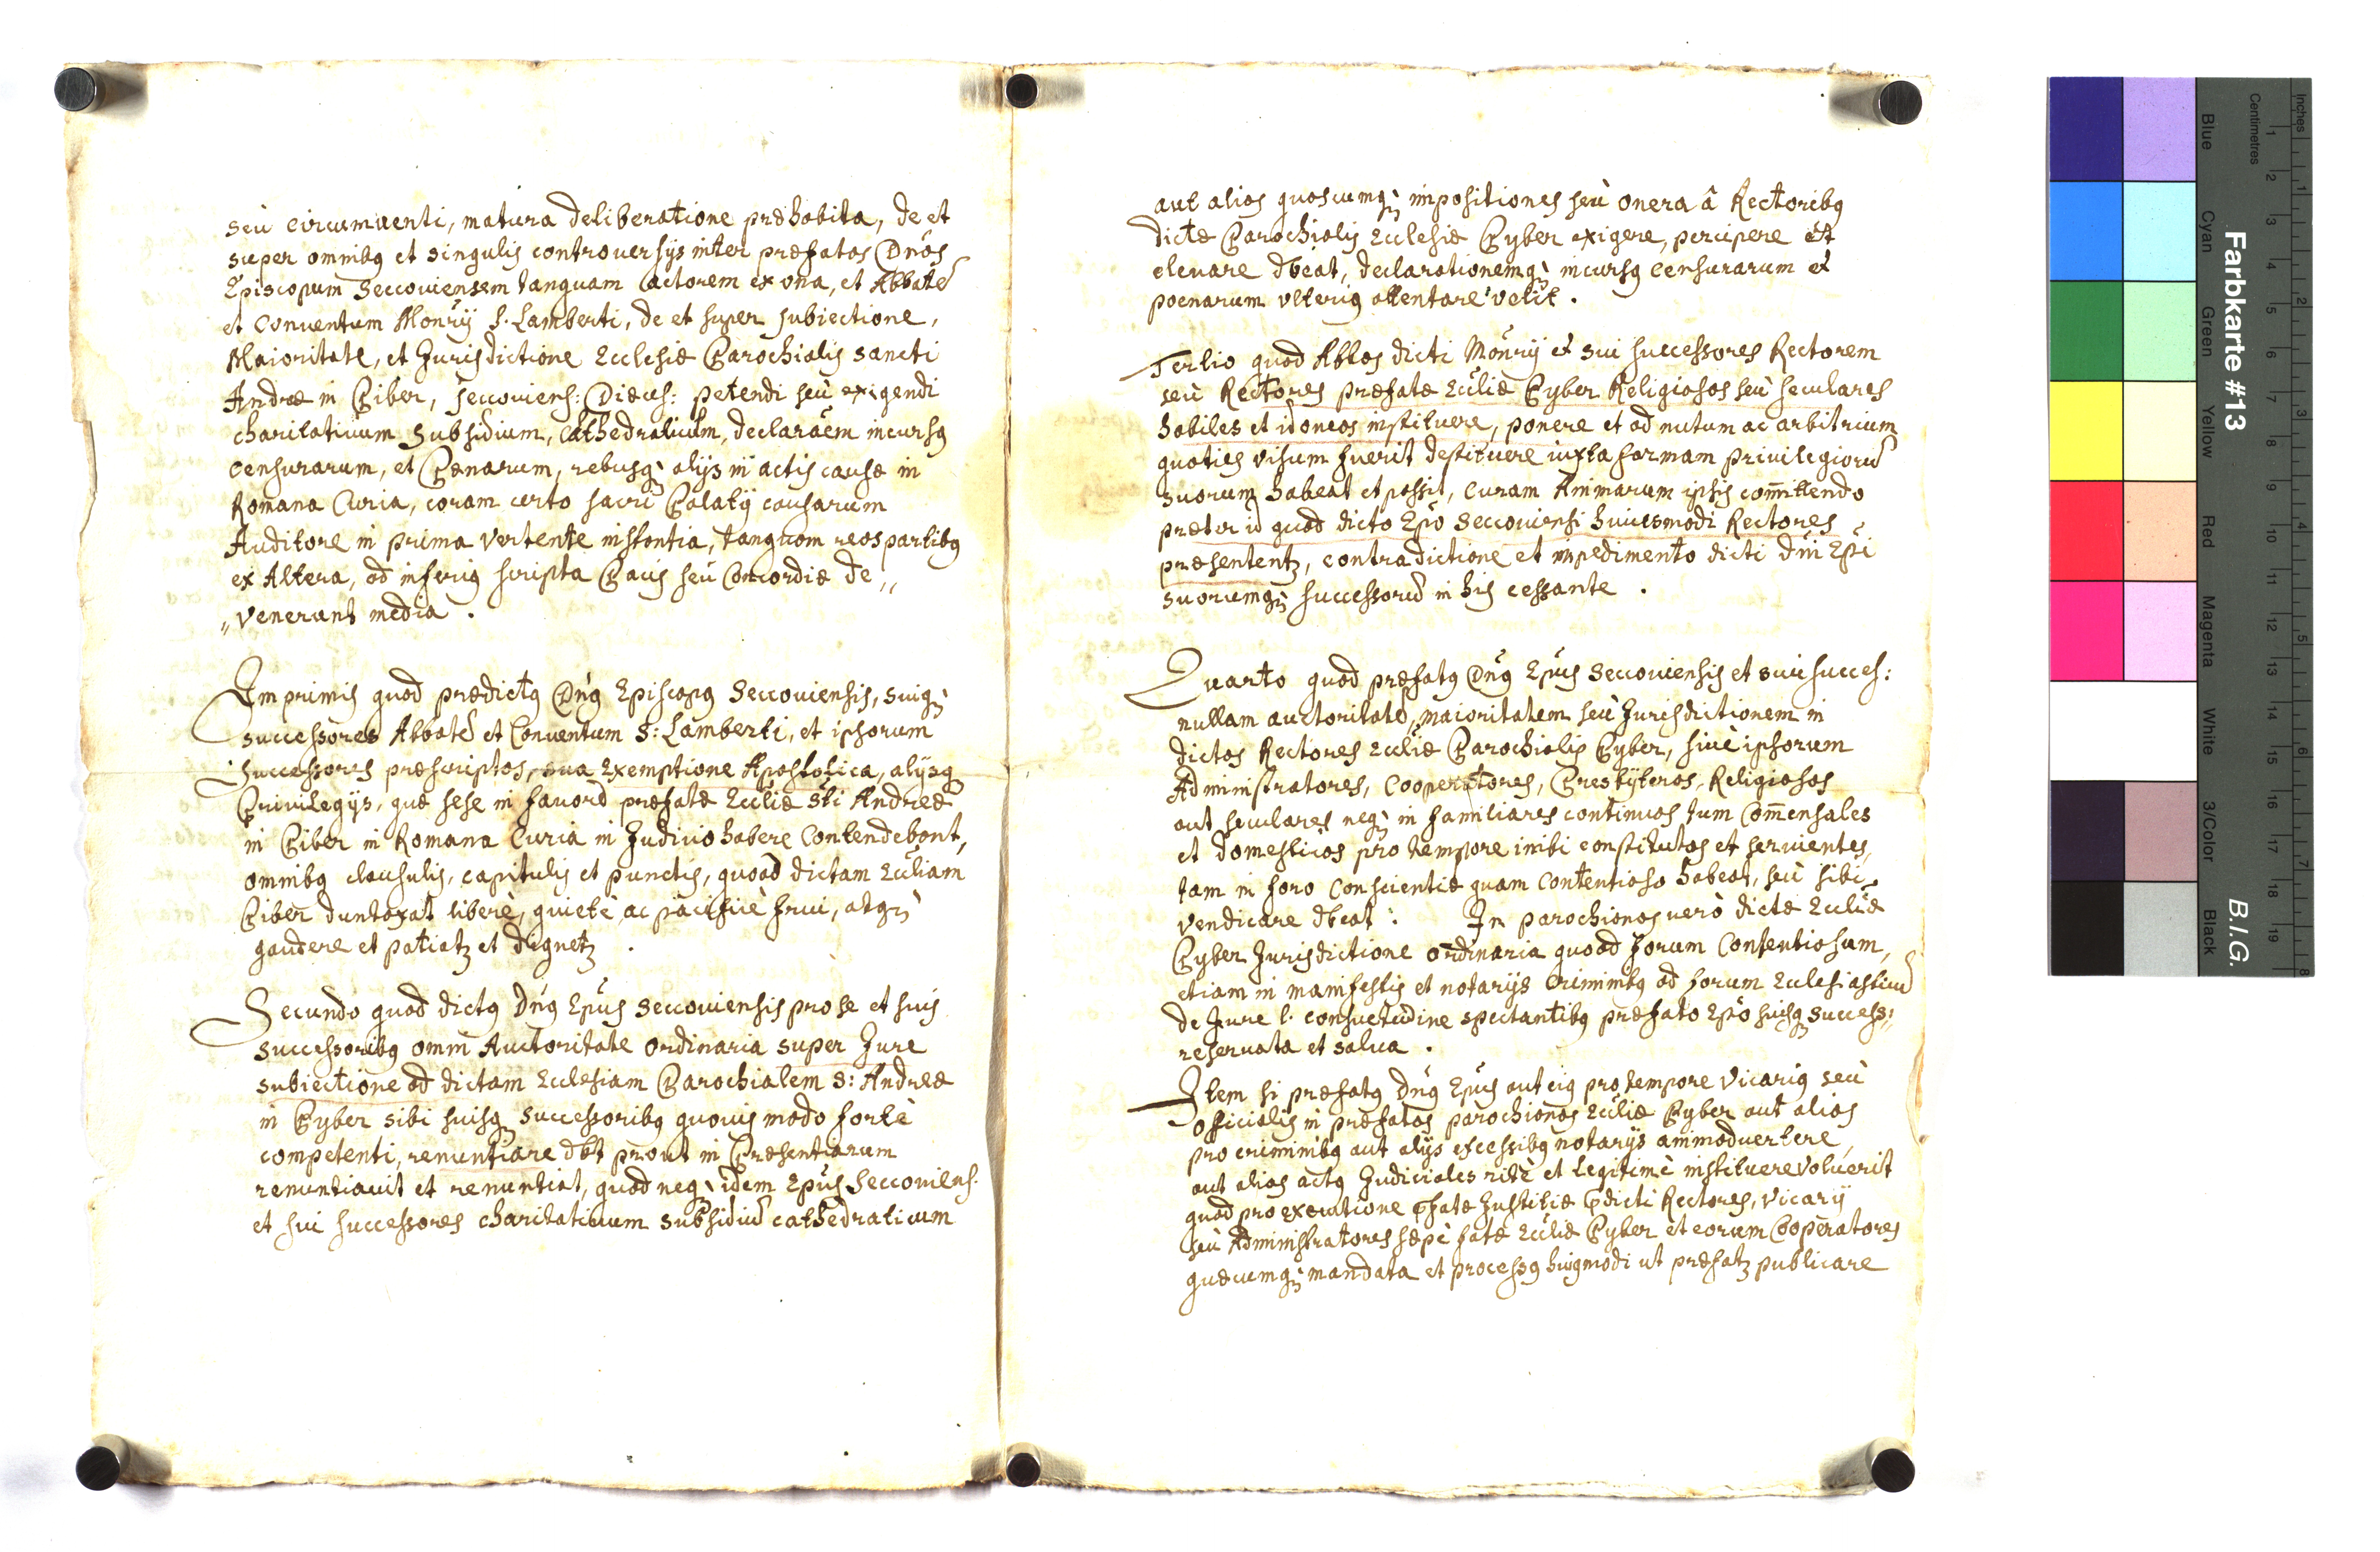 seù circumuenti, matura deliberatione præhabita, de et
super omnibꝯ et singulis controuersijs inter præfatos Dnōs
Episcopum Seccouiensem tanquam Actorem ex ōna, et Abbatē
et Conuentum Monrij S. Lamberti, de et super subiectione,
Maioritate, et Jurisdictione Ecclesiæ Parochialis sancti
Andreæ in Piber, Seccouiens: Diæces: petendi seù exigendi
charitatiuum subsidium, Cathedraticum, declaraēm incursꝯ
Censurarum, et Pænarum, rebusq; alijs in actis causæ in
Romana Curia, coram certo sacri Palatij causarum
Auditore in prima vertente instantia, tanquam reos partibꝯ
ex Altera, ad inferiꝯ scripta Pacis seù Concordiæ de„
„venerunt media .
Imprimis quod prædictꝯ Dnꝯ Episcopꝯ Seccouiensis, suiq;
successores Abbatē et Conuentum S: Lamberti, et ipsorum
successores præscriptos, sua Exemptione Apostolica, alijsq;
Priuilegijs, quæ sese in fauorē præfatæ Eccliæ Sti Andreæ
in Piber in Romana Curia in Judicio habere Contendebant,
omnibꝯ clausulis, capitulis et punctis, quoad dictam Eccliam
Piber duntaxat liberè, quietè ac pacificè frui, atq;
gaudere et patiatꝫ et dignetꝫ .
Secundo quod dictꝯ Dnꝯ Epūs Seccouiensis pro se et suis
successoribꝯ omni Auctoritate ordinaria super Jure
subiectione ad dictam Ecclesiam Parochialem S: Andreæ
in Pyber sibi suisq; successoribꝯ quouis modo fortè
competenti, renuntiare dbt prout in Præsentiarum
renuntiauit et renuntiat, quod neq; idem Epūs Seccouiens.
et sui successores charitatiuum subsidiū cathedraticum
aut alias quascumq; impositiones seù onera â Rectoribꝯ
dictæ Parochialis Ecclesiæ Pyber exigere, percipere et
eleuare dbeat, declarationemq; incursꝯ Censurarum et
poenarum vlteriꝯ attentare velit .
Tertio quod Abbas dicti Monrij et sui successores Rectorem
seù Rectores præfatæ Eccliæ Pyber Religiosos seù seculares
habiles et idoneos instituere, ponere et ad nutum ac arbitrium
quoties visum fuerit destituere iuxta formam priuilegiorū
suorum habeat et possit, Curam Animarum ipsis com̄ittendo
præter id quod dicto Epō Seccouiensi huiusmodi Rectores
præsententꝫ, contradictione et impedimento dicti Dni Epi
suorumq; successorū in his cessante .
Quarto quod præfatꝯ Dnꝯ Epūs Seccouiensis et sui succes:
nullam auctoritatē, maioritatem seù Jurisdictionem in
dictos Rectores Eccliæ Parochialis Pyber, siuè ipsorum
Administratores, Cooperatores, Presbÿteros, Religiosos
aut seculares neq; in familiares continuos tum Com̄ensales
et domesticos pro tempore inibi constitutos et seruientes,
tam in foro Conscientiæ quam Contentioso habeat, seù sibi
vendicare dbeat : In parochianos verò dictæ Eccliæ
Pyber Jurisdictione ordinaria quoad forum Contentiosum,
etiam in manifestis et notarijs criminibꝯ ad forum Ecclesiasticū
de Jure l. consuetudine spectantibꝯ præfato Epō suisq; success:
reseruata et salua .
Item si præfatꝯ Dnꝯ Epūs aut eiꝯ pro tempore Vicariꝯ seù
officialis in præfatos parochianos Eccliæ Pyber aut alios
pro criminibꝯ aut alijs excessibꝯ notarijs animaduertere,
aut alios actꝯ Judiciales ritè et legitimè instituere voluerit
quod pro executione p̄fatæ Justitiæ p̄dicti Rectores, Vicarij
seù Administratores sæpè fatæ Eccliæ Pyber et eorum Cooperatores
quæcumq; mandata et processꝯ huiꝯmodi ut præfatꝫ publicare
Farbkarte #13
B.I.G.
Inches
Centimetres
Blue
Cyan
Green
Yellow
Red
Magenta
White
3/Color
Black